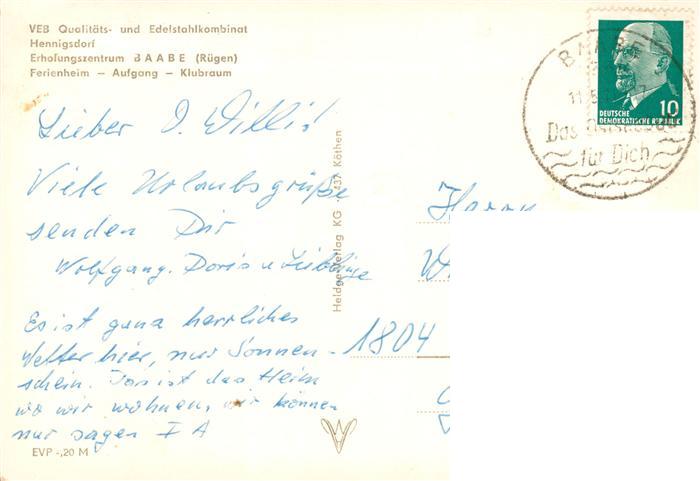 VEB Qualitäts- und Edelstahlkombinat
Hennigsdorf
Erholungszentrum BAABE (Rügen)
Ferienheim – Aufgang – Klubraum
BAABE
DEUTSCHE
DEMOKRATISCHE REPUBLIK
10
Das
für Dich
Lieber O. Willi!
Viele Urlaubsgrüße
senden Dir
Wolfgang. Doris u.
Es ist ganz herrliches
Wetter hier, nur Sonnen-
schein. Das ist das Heim
wo wir wohnen, wir können
nur sagen I A
EVP -,20 M
Heldge-Verlag KG 437 Köthen
Herrn
1804